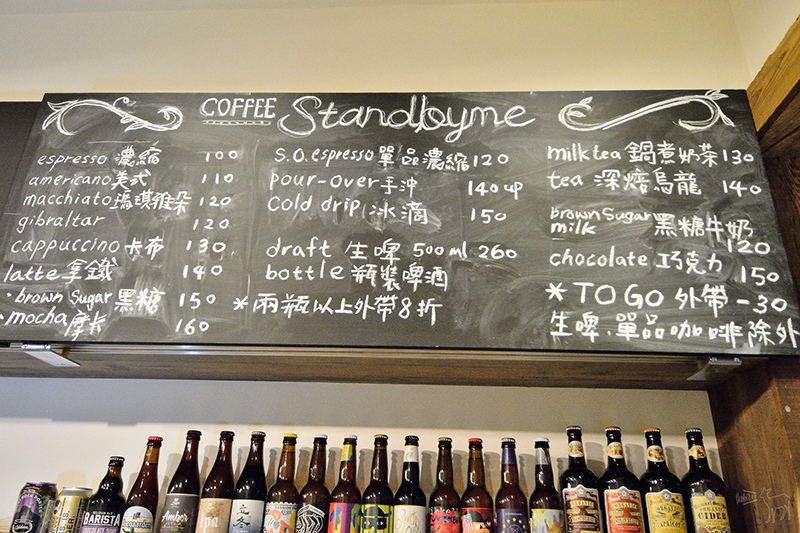 COFFEE Standbyme
espresso 濃縮 100
americano 美式 110
macchiato 瑪琪雅朵 120
gibraltar 120
cappuccino 卡布 130
latte 拿鐵 140
· brown Sugar 黑糖 150
· mocha 摩卡 160
S.O. espresso 單品濃縮 120
pour-over 手沖 140 up
cold drip 冰滴 150
draft 生啤 500 ml 260
bottle 瓶裝啤酒
* 兩瓶以上外帶8折
milk tea 鍋煮奶茶 130
tea 深焙烏龍 140
brown Sugar
milk 黑糖牛奶
120
chocolate 巧克力 150
* TO GO 外帶 -30
生啤.單品咖啡除外
BARISTA
CHOCOLATE
Amber
ipa
立冬
ORGANIC
ORGANIC
APRICOT
ORGANIC
CIDER